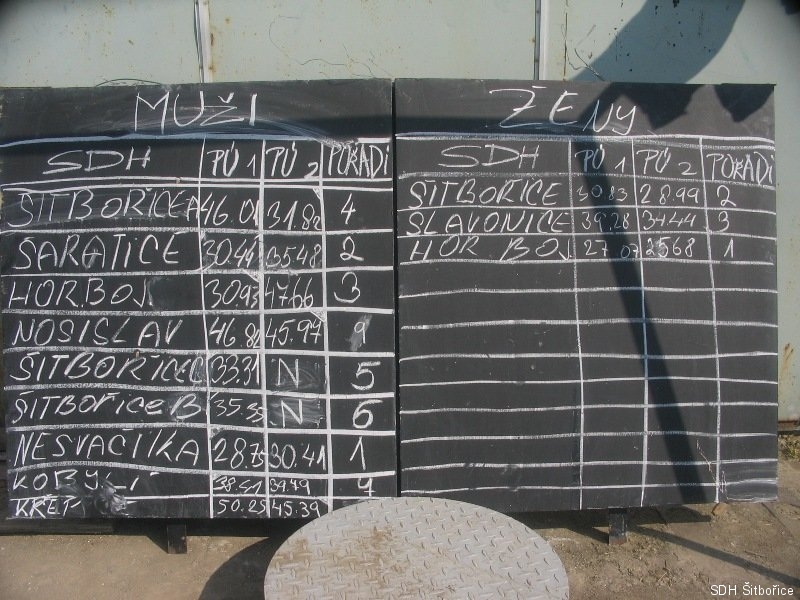 MUŽI
SDH PÚ 1 PÚ 2 POŘADÍ
ŠITBOŘICE A 46.01 31.82 4
ŠARATICE 30.41 35.48 2
HOR.BOJ. 30.93 47.66 3
NOSISLAV 46.82 45.97 9
ŠITBOŘICE C 33.31 N 5
ŠITBOŘICE B 35.35 N 6
NESVAČILKA 28.75 30.41 1
KOBYLÍ 38.41 39.79 7
KŘEP 50.25 45.39
ŽENY
SDH PÚ 1 PÚ 2 POŘADÍ
ŠITBOŘICE 30.83 28.99 2
SLAVONICE 39.28 34.44 3
HOR BOJ 27.07 25.68 1
SDH Šitbořice